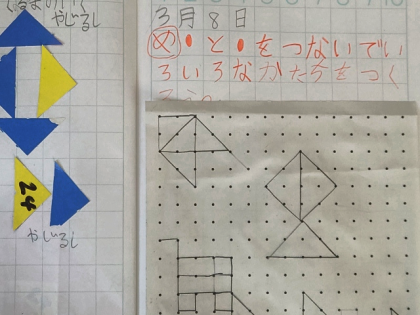 やじるし
3月8日
め ・と・をつないでい
ろいろなかたちをつく
24
やじるし